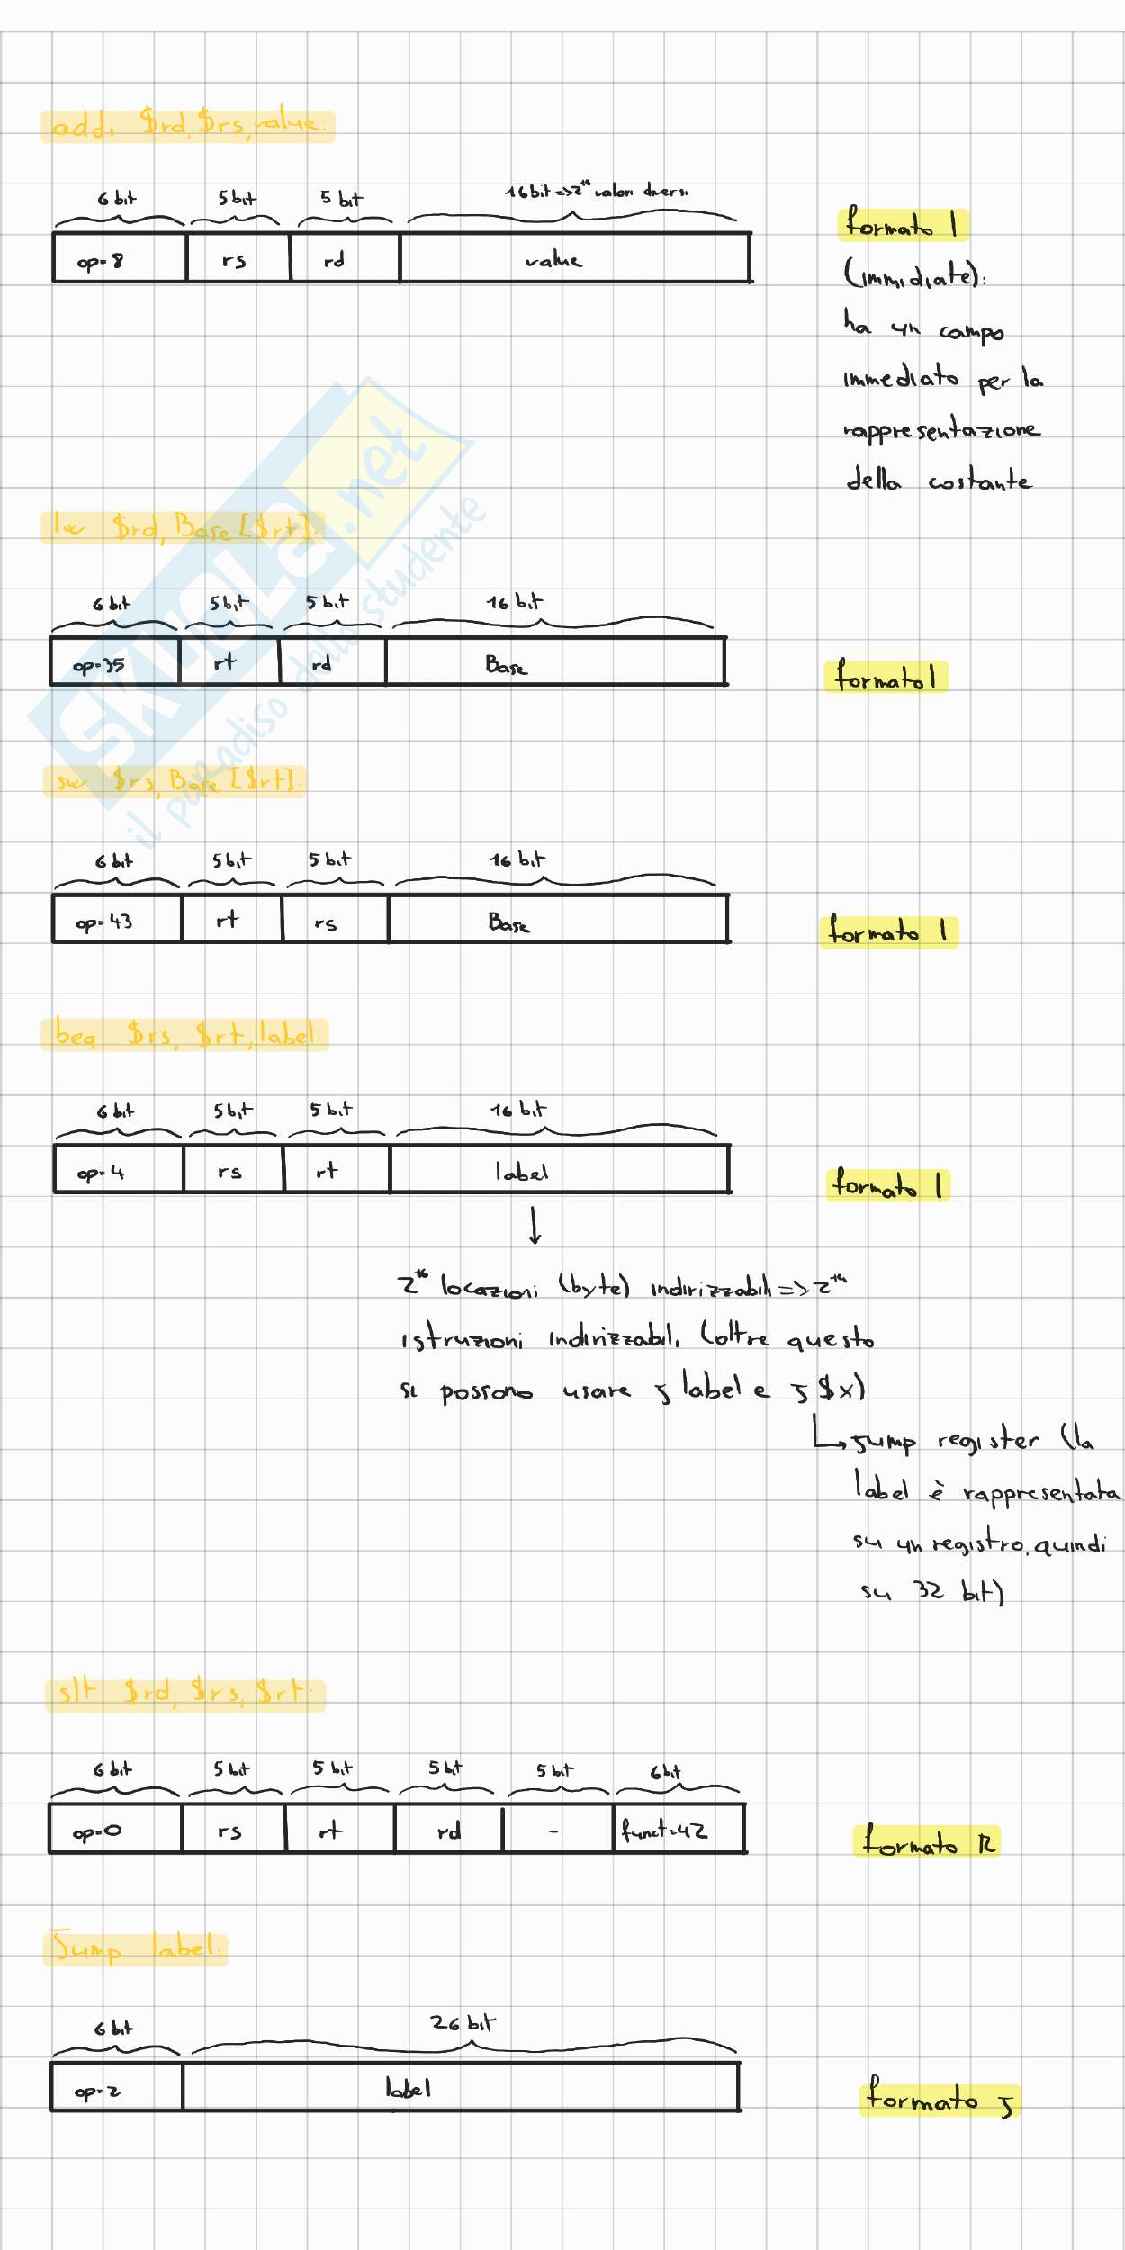 addi $rd, $rs, value:
6 bit 5 bit 5 bit 16 bit => 2¹⁶ valori diversi
op=8 rs rd value
formato I
(immidiate):
ha un campo
immediato per la
rappresentazione
della costante
lw $rd, Base [$rt]:
6 bit 5 bit 5 bit 16 bit
op=35 rt rd Base
formato I
sw $rs, Base [$rt]:
6 bit 5 bit 5 bit 16 bit
op=43 rt rs Base
formato I
beq $rs, $rt, label
6 bit 5 bit 5 bit 16 bit
op=4 rs rt label
formato I
2¹⁶ locazioni (byte) indirizzabili => 2¹⁴
istruzioni indirizzabili (oltre questo
si possono usare J label e J $x)
Jump register (la
label è rappresentata
su un registro, quindi
su 32 bit)
slt $rd, $rs, $rt:
6 bit 5 bit 5 bit 5 bit 5 bit 6 bit
op=0 rs rt rd - funct=42
formato R
Jump label:
6 bit 26 bit
op=2 label
formato J
SKUOLA.net
il paradiso dello studente